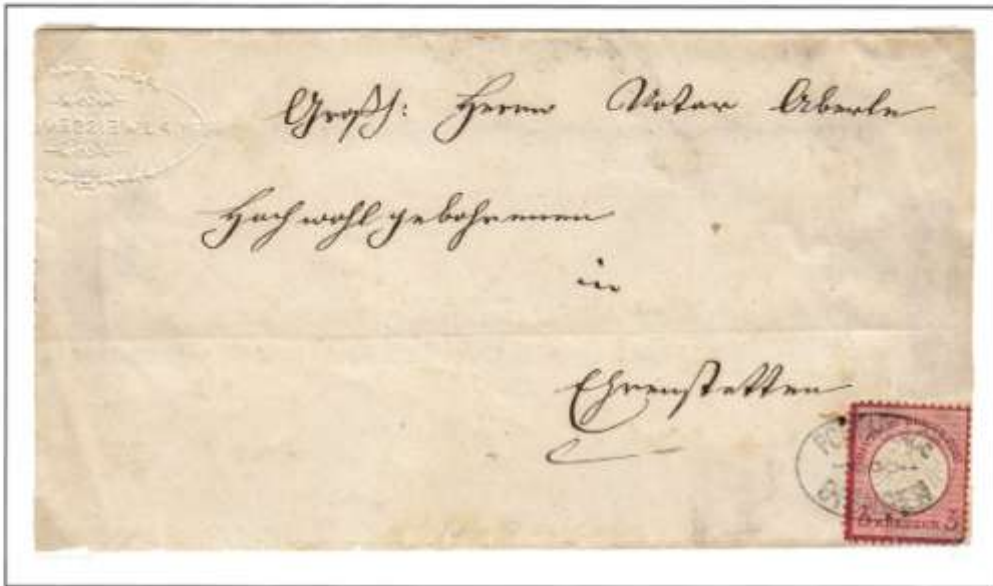 Großh: Herrn Notar Aberle
Hochwohlgebohrenen
in
Ehrenstetten
3 KREUZER 3